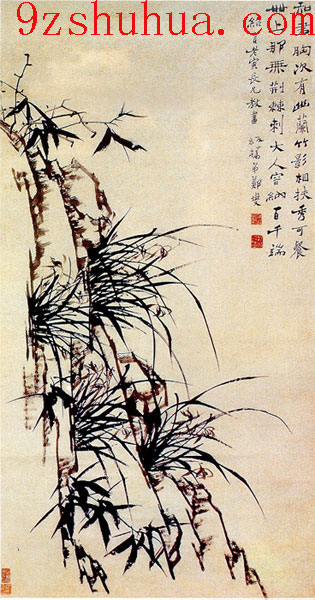 9zshuhua.com
知君胸次有幽蘭竹影相扶秀可餐
世上那無荊棘刺大人容納百千端
老寅長兄教畫 板橋弟鄭燮